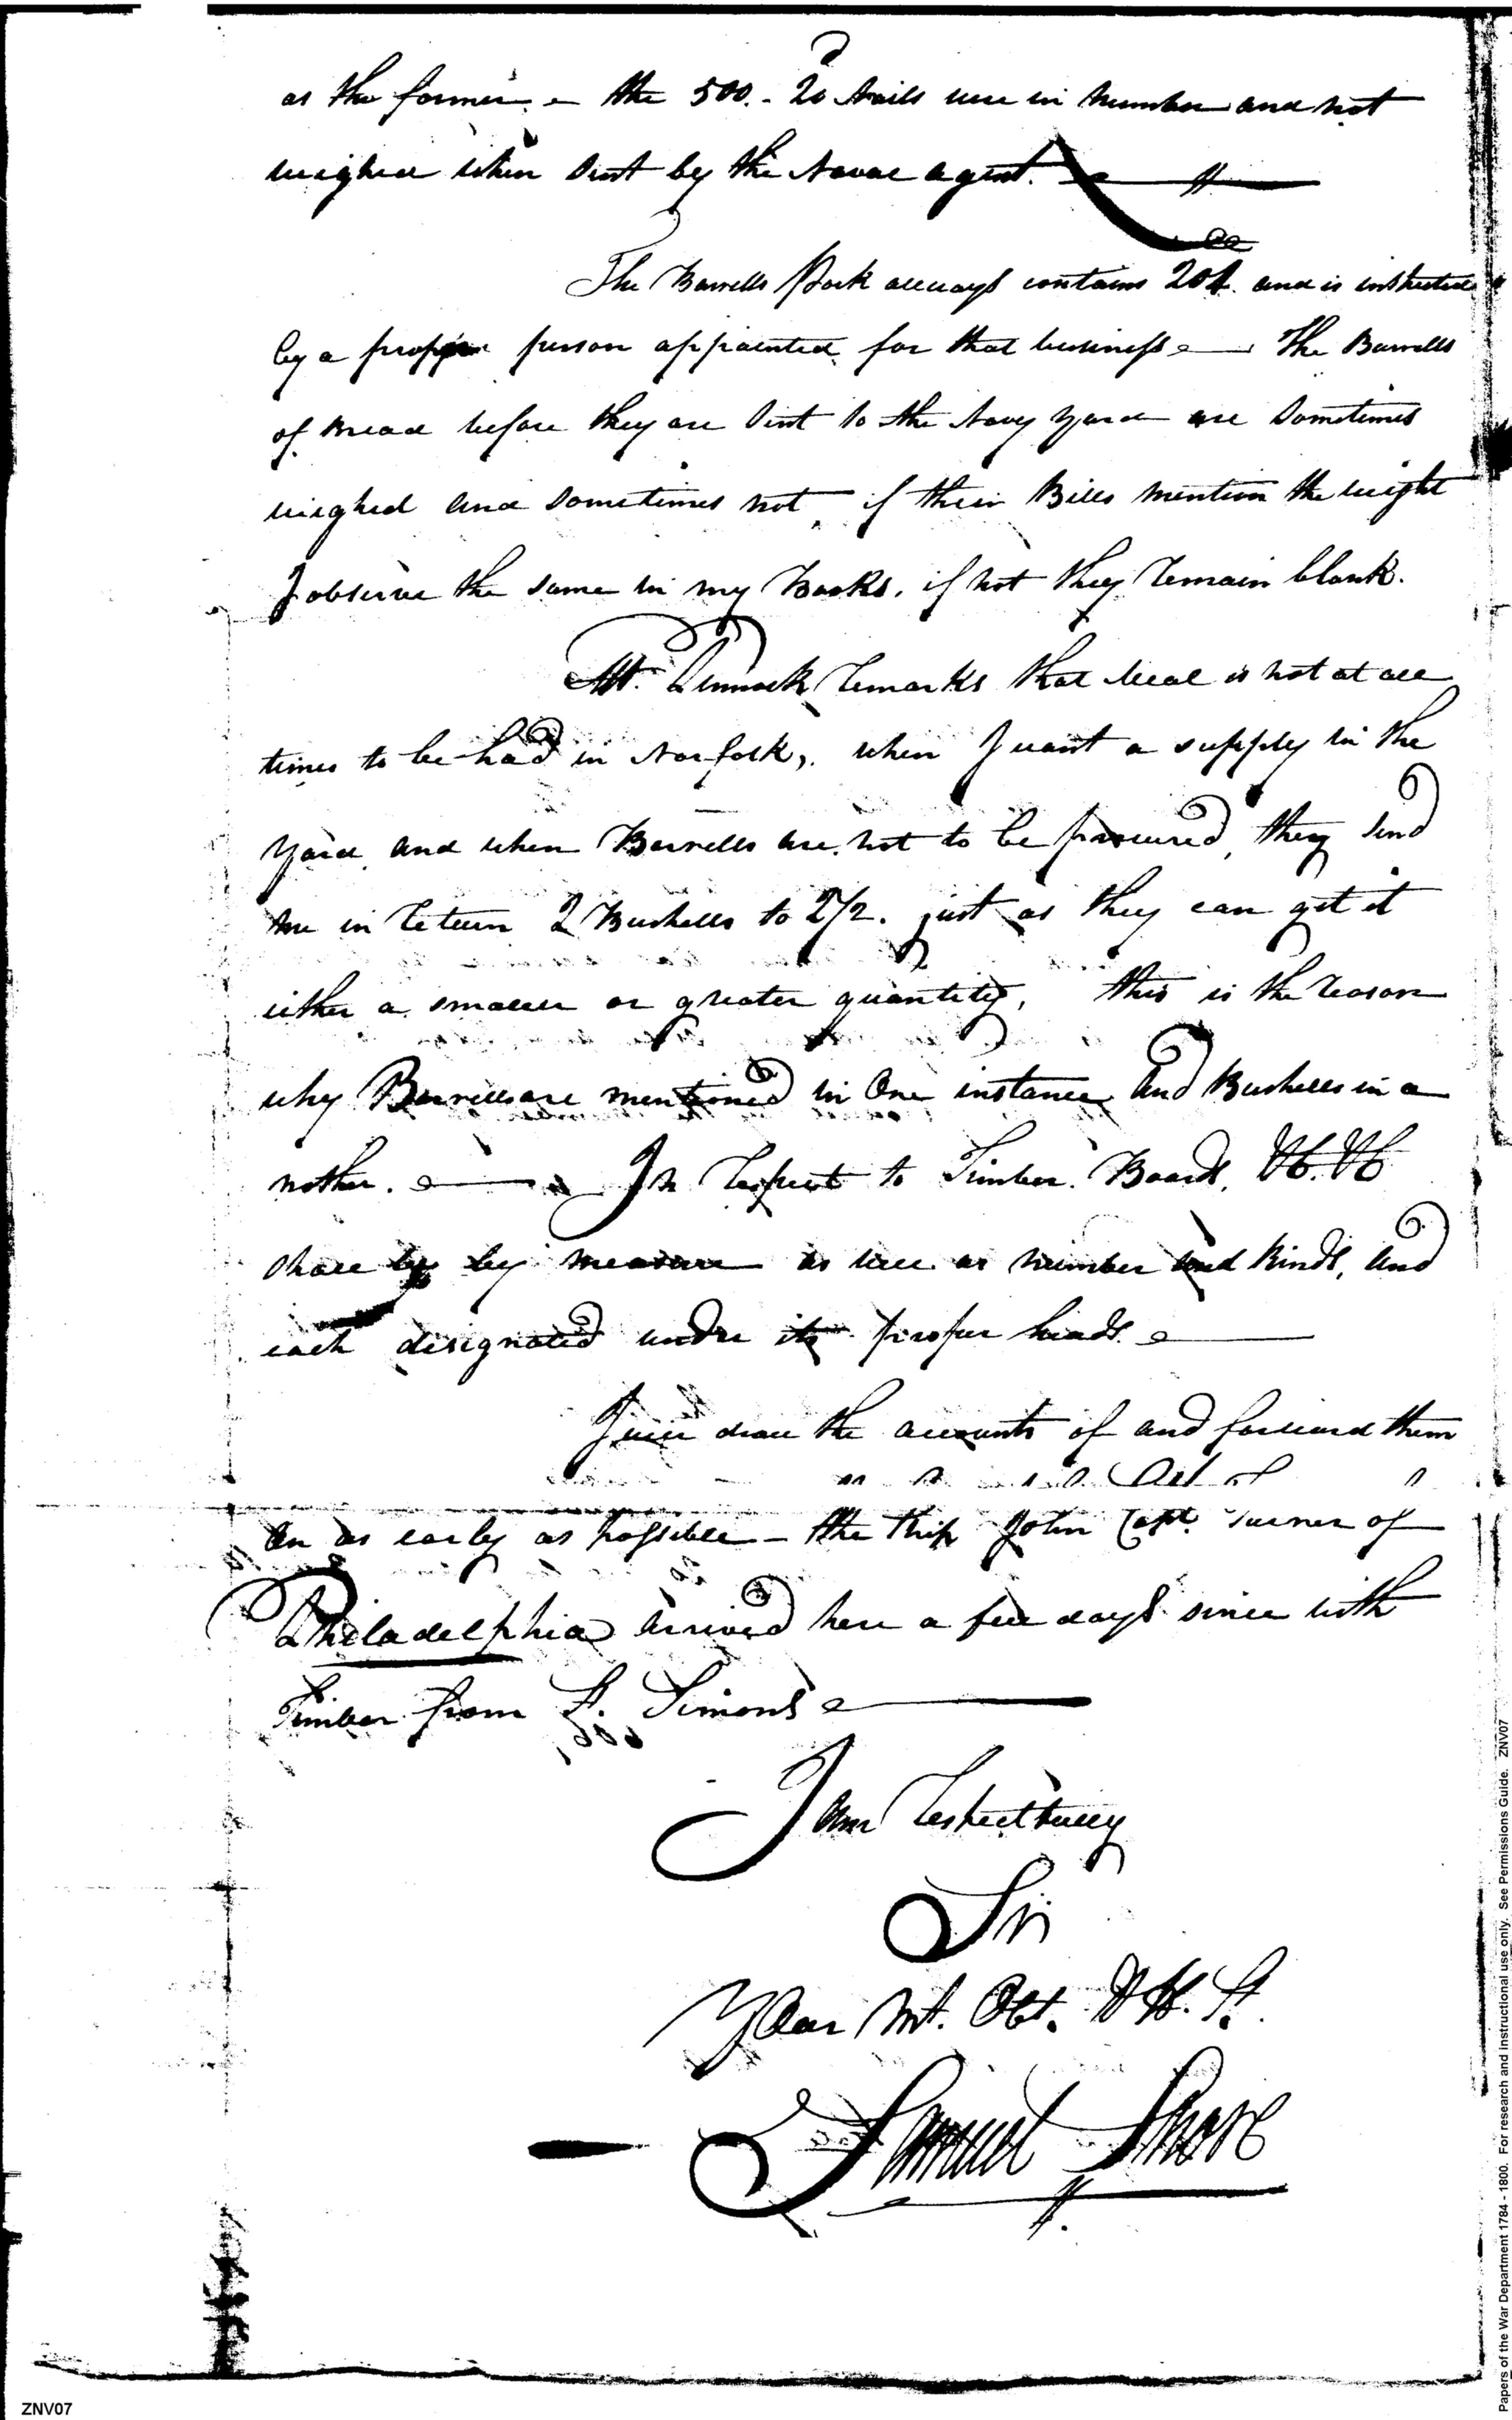 as the former. - the 500. - 20d Nails were in Number and not
weighed when Sent by the Naval agent. 
The Barrells Pork allways contains 200 lb. and is inspected
by a proper person appointed for that business — The Barrells
of Bread before they are Sent to the Navy Yard are Sometimes
weighed and Sometimes not, if their Bills mention the weight
I observe the same in my Books, if not they Remain blank.
Mr. Pennock Remarks that Meal is not at all
times to be had in Norfolk, when I want a supply in the
Yard, and when Barrells are not to be procured, they Send
me in Return 2 Bushells to 2 1/2. just as they can get it
either a smaller or greater quantity, this is the Reason
why Barrells are mentioned in One instance and Bushells in a
nother. — In Respect to Timber. Boards, &c. &c
shall by by measure as well as number and Kinds, and
each designated under its proper heads —
I will draw the accounts of and forward them
on as early as possible - the Ship John Capt. Turner of
Philadelphia arrived here a few days since with
Timber from St. Simons —
I am Respectfully
Sir
Your Mt. Obt. H. St.
Samuel Shore
ZNV07
Papers of the War Department 1784 - 1800. For research and instructional use only. See Permissions Guide. ZNV07